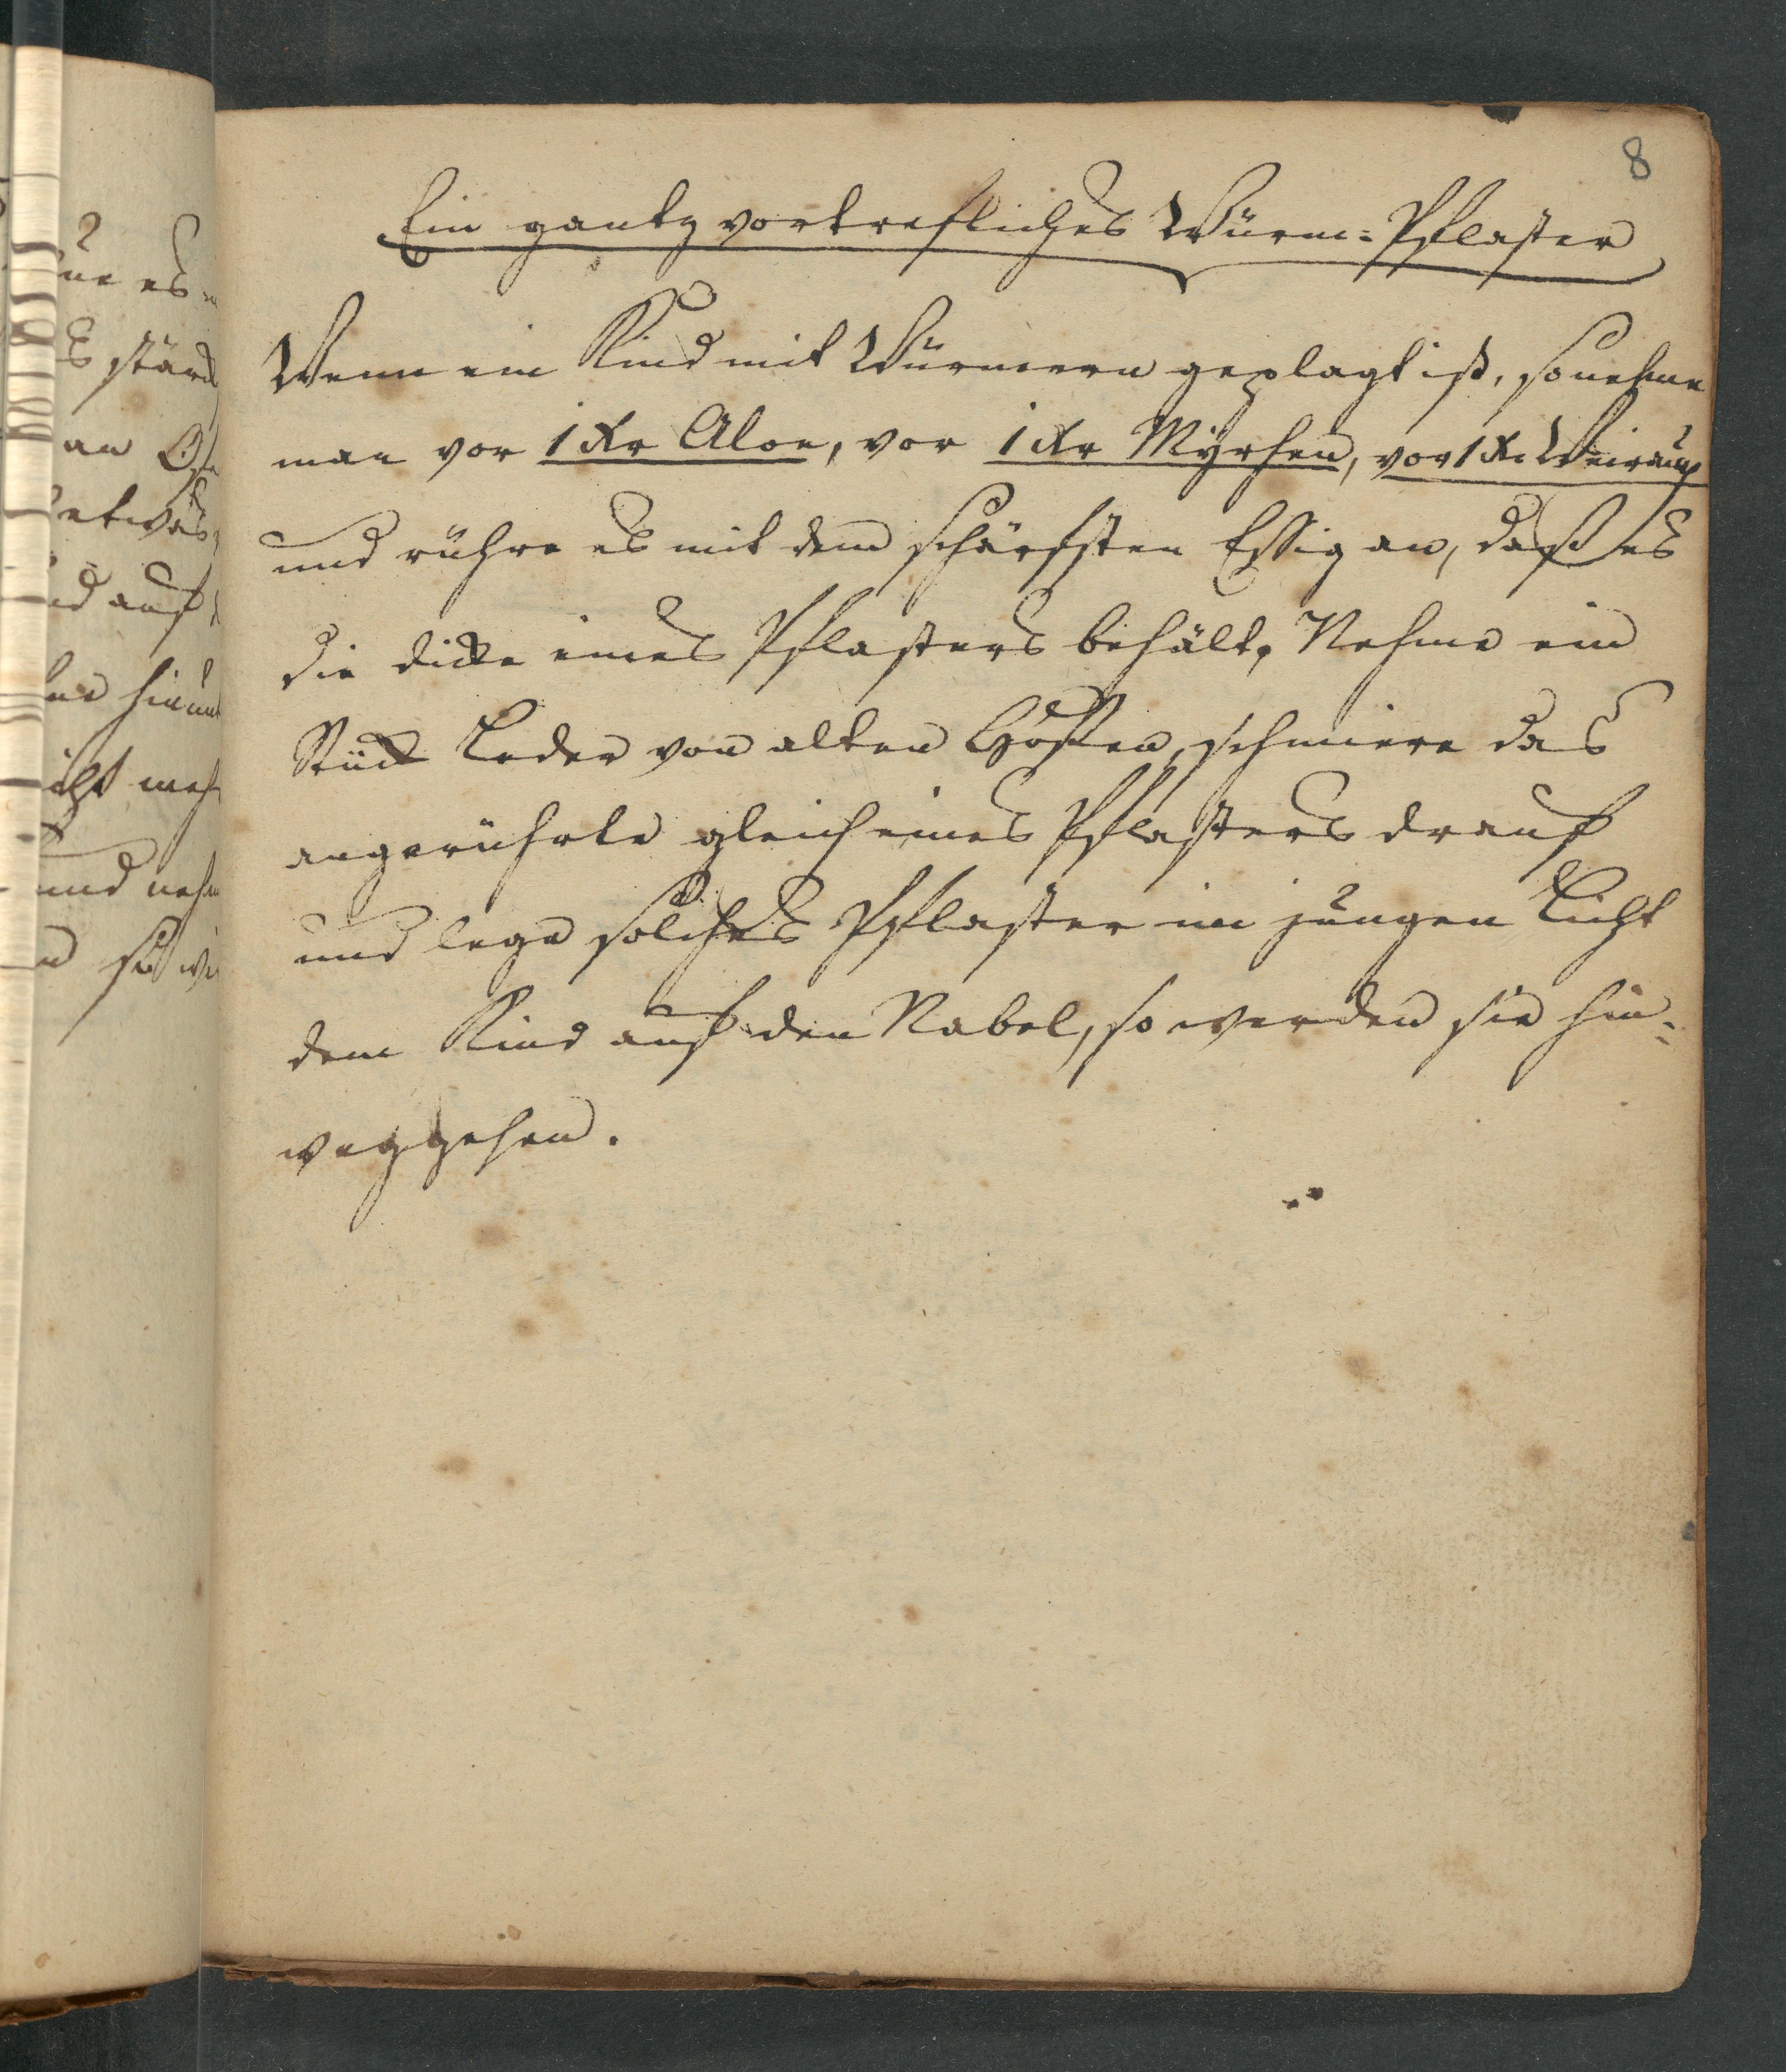 8
Ein gantz vortrefliches Würm=Pflaster
Wenn ein Kind mit Würmern geplagt ist, so nehme
man vor 1 Xr Aloe, vor 1 Xr Myrhen, vor 1 Xr Weirauch
und rühre es mit dem schärfsten Essig an, daß es
die dicke eines Pflasters behält, Nehme ein
Stück Leder von alten Hosen, schmiere das
angerührte gleich eines Pflasters drauf
und lege solches Pflaster im jungen Licht
dem Kind auf den Nabel, so werden sie hin=
weggehen.